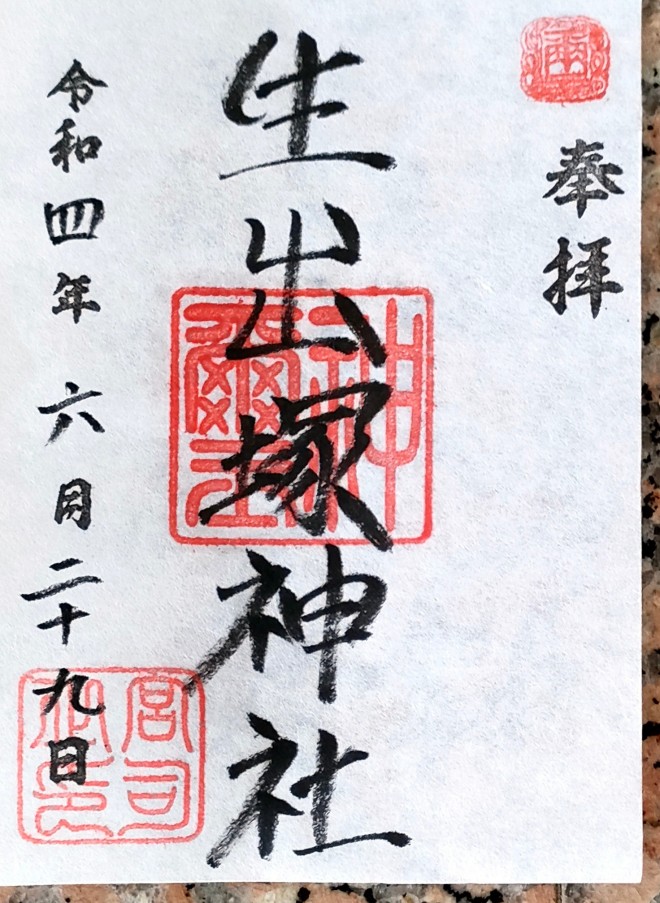 奉拝
生出塚神社
神璽
宮司之印
令和四年 六月二十九日